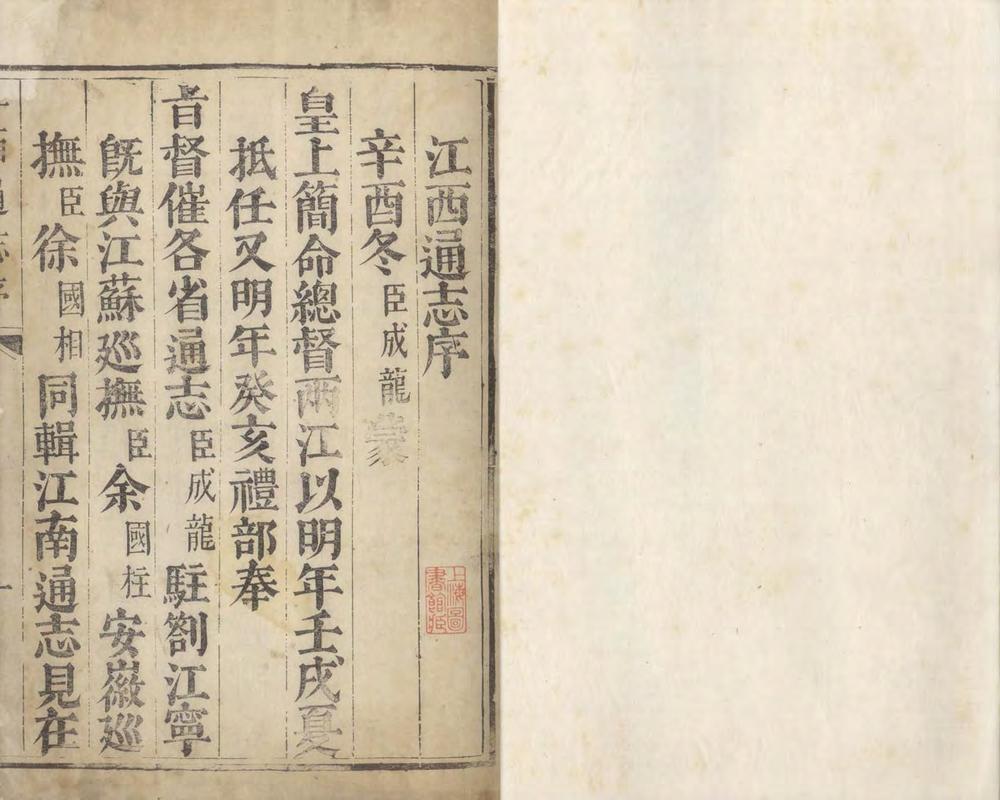 江西通志序
辛酉冬臣成龍蒙
皇上簡命總督兩江以明年壬戌夏
抵任又明年癸亥禮部奉
旨督催各省通志臣成龍駐劄江寧
旣與江蘇廵撫臣余國柱安徽廵
撫臣徐國相同輯江南通志見在
上海圖書館藏